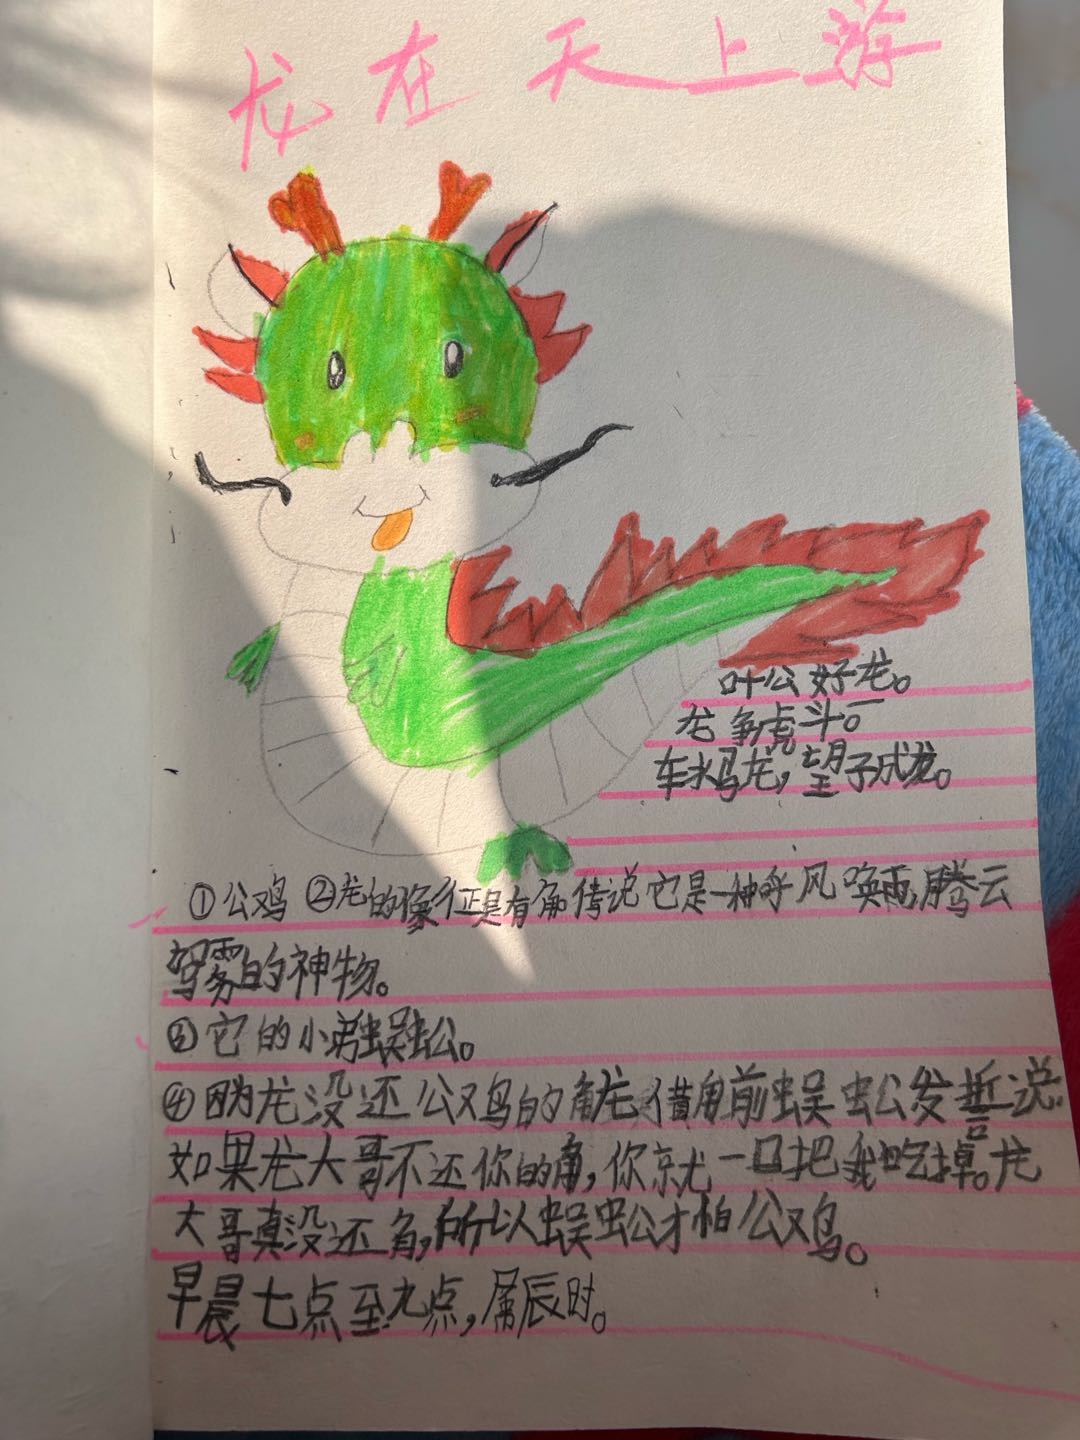 龙在天上游
叶公好龙。
龙争虎斗。
车水马龙，望子成龙。
①公鸡 ②龙的像征是有角传说它是一种呼风唤雨,腾云
驾雾的神物。
③它的小弟蜈蚣。
④因为龙没还公鸡的角龙借角前蜈蚣公发誓说,
如果龙大哥不还你的角,你就一口把我吃掉。龙
大哥真没还角,所以蜈蚣公才怕公鸡。
早晨七点至九点,属辰时。